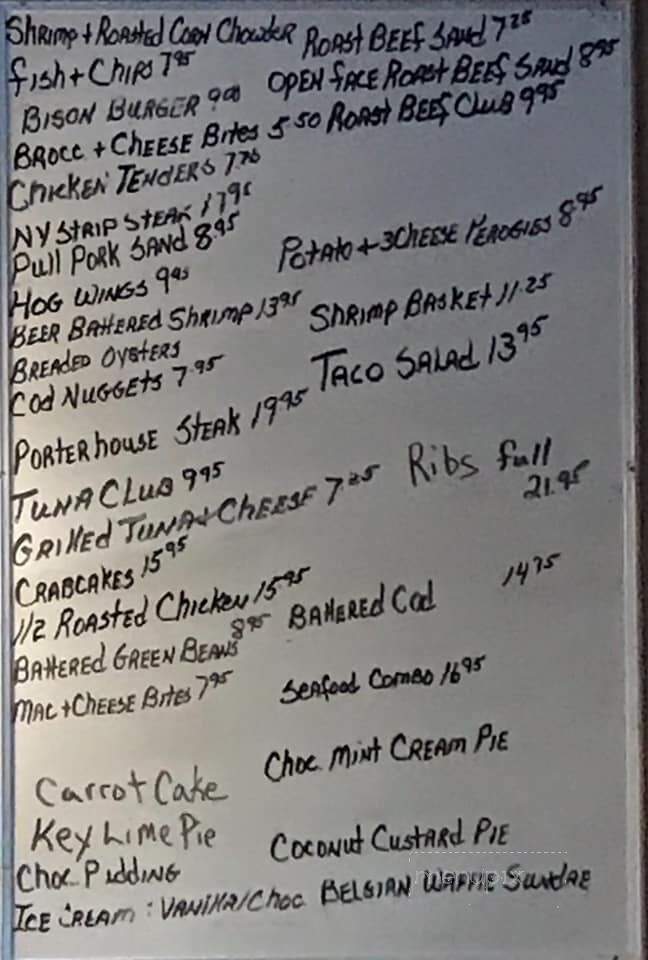 Shrimp + Roasted Corn Chowder Roast Beef Sand 7 25
Fish + Chips 7 95
Open Face Roast Beef Sand 8 95
Bison Burger 9 00
Brocc + Cheese Bites 5 50 Roast Beef Club 9 95
Chicken Tenders
NY Strip Steak 17 95
Pull Pork Sand 8 95
Potato + 3 Cheese Perogies 8 95
Hog Wings 9 95
Beer Battered Shrimp 13 95 Shrimp Basket 11.25
Breaded Oysters
Cod Nuggets 7.95 Taco Salad 13 95
Porterhouse Steak 19 95
Tuna Club 9 95
Ribs full
21.95
Grilled Tuna + Cheese 7 25
Crabcakes 15 95
1/2 Roasted Chicken 15 95
Battered Cod 14 75
Battered Green Beans 8 95
Mac + Cheese Bites 7 95 Seafood Combo 16 95
Choc Mint Cream Pie
Carrot Cake
Key Lime Pie Coconut Custard Pie
Choc. Pudding
Ice Cream: Vanilla/Choc Belgian Waffle Sundae
menupix